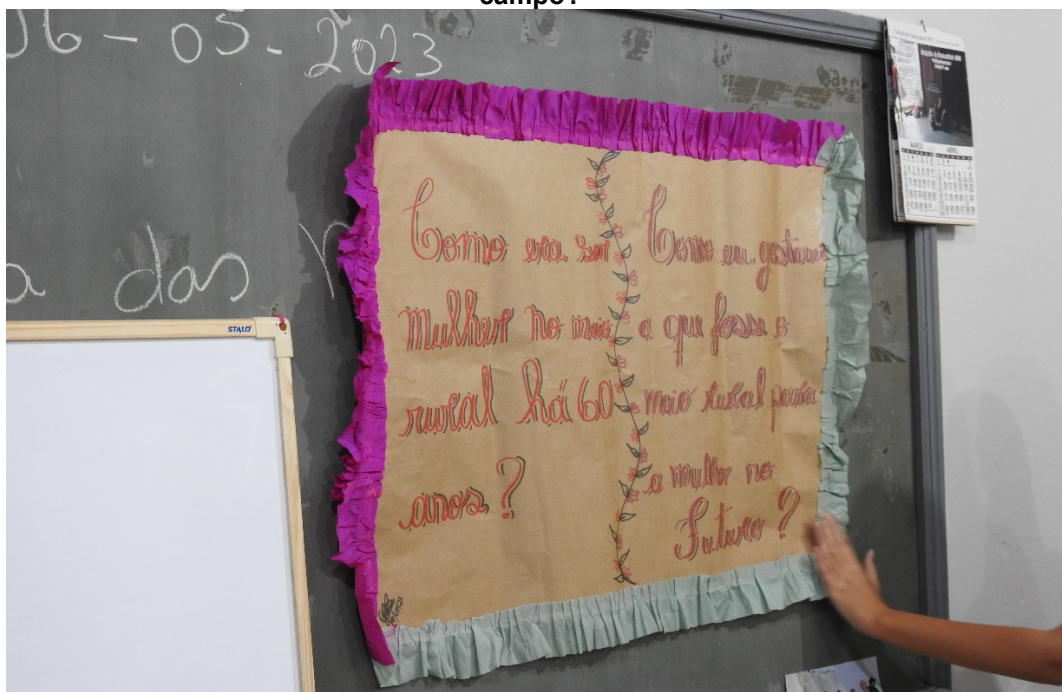 campo?
06-05-2023
a das
STALO
Como era ser
mulher no meio
rural há 60
anos?
Como eu gostaria
a que fosse o
meio rural para
a mulher no
Futuro?
MARÇO ABRIL